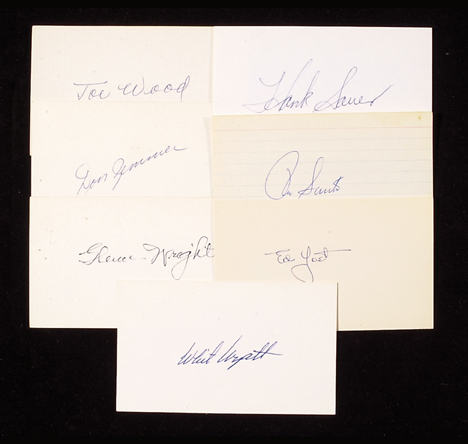 Joe Wood
Hank Sauer
Don Zimmer
Ron Santo
Glenn Wright
Ed Yost
Whit Wyatt